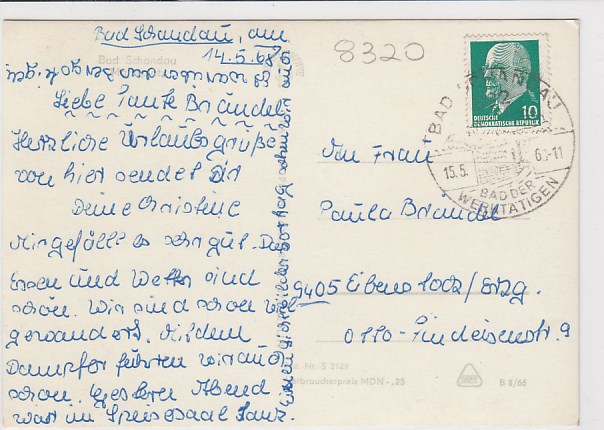 Bad Schandau, am
14.5.68
Liebe Tante Brändel.
Herzliche Urlaubsgrüße
von hier sendet Dir
Deine Christine
Mir gefällt es sehr gut. Das
Essen und Wetter sind
schön. Wir sind schon viel
gewandert. Mit dem
Dampfer fuhren wir auch
schon. Gestern Abend
war im Speisesaal Tanz.
Bad Schandau
8320
DEUTSCHE
DEMOKRATISCHE REPUBLIK
10
BAD SCHANDAU
15.5.
-11
BAD DER
WERKTÄTIGEN
An Frau
Paula Brändel
9405 Eibenstock/Erzg.
Otto-Findeisenstr. 9
Nr. S 2149
Verbraucherpreis MDN -,25
B 8/66